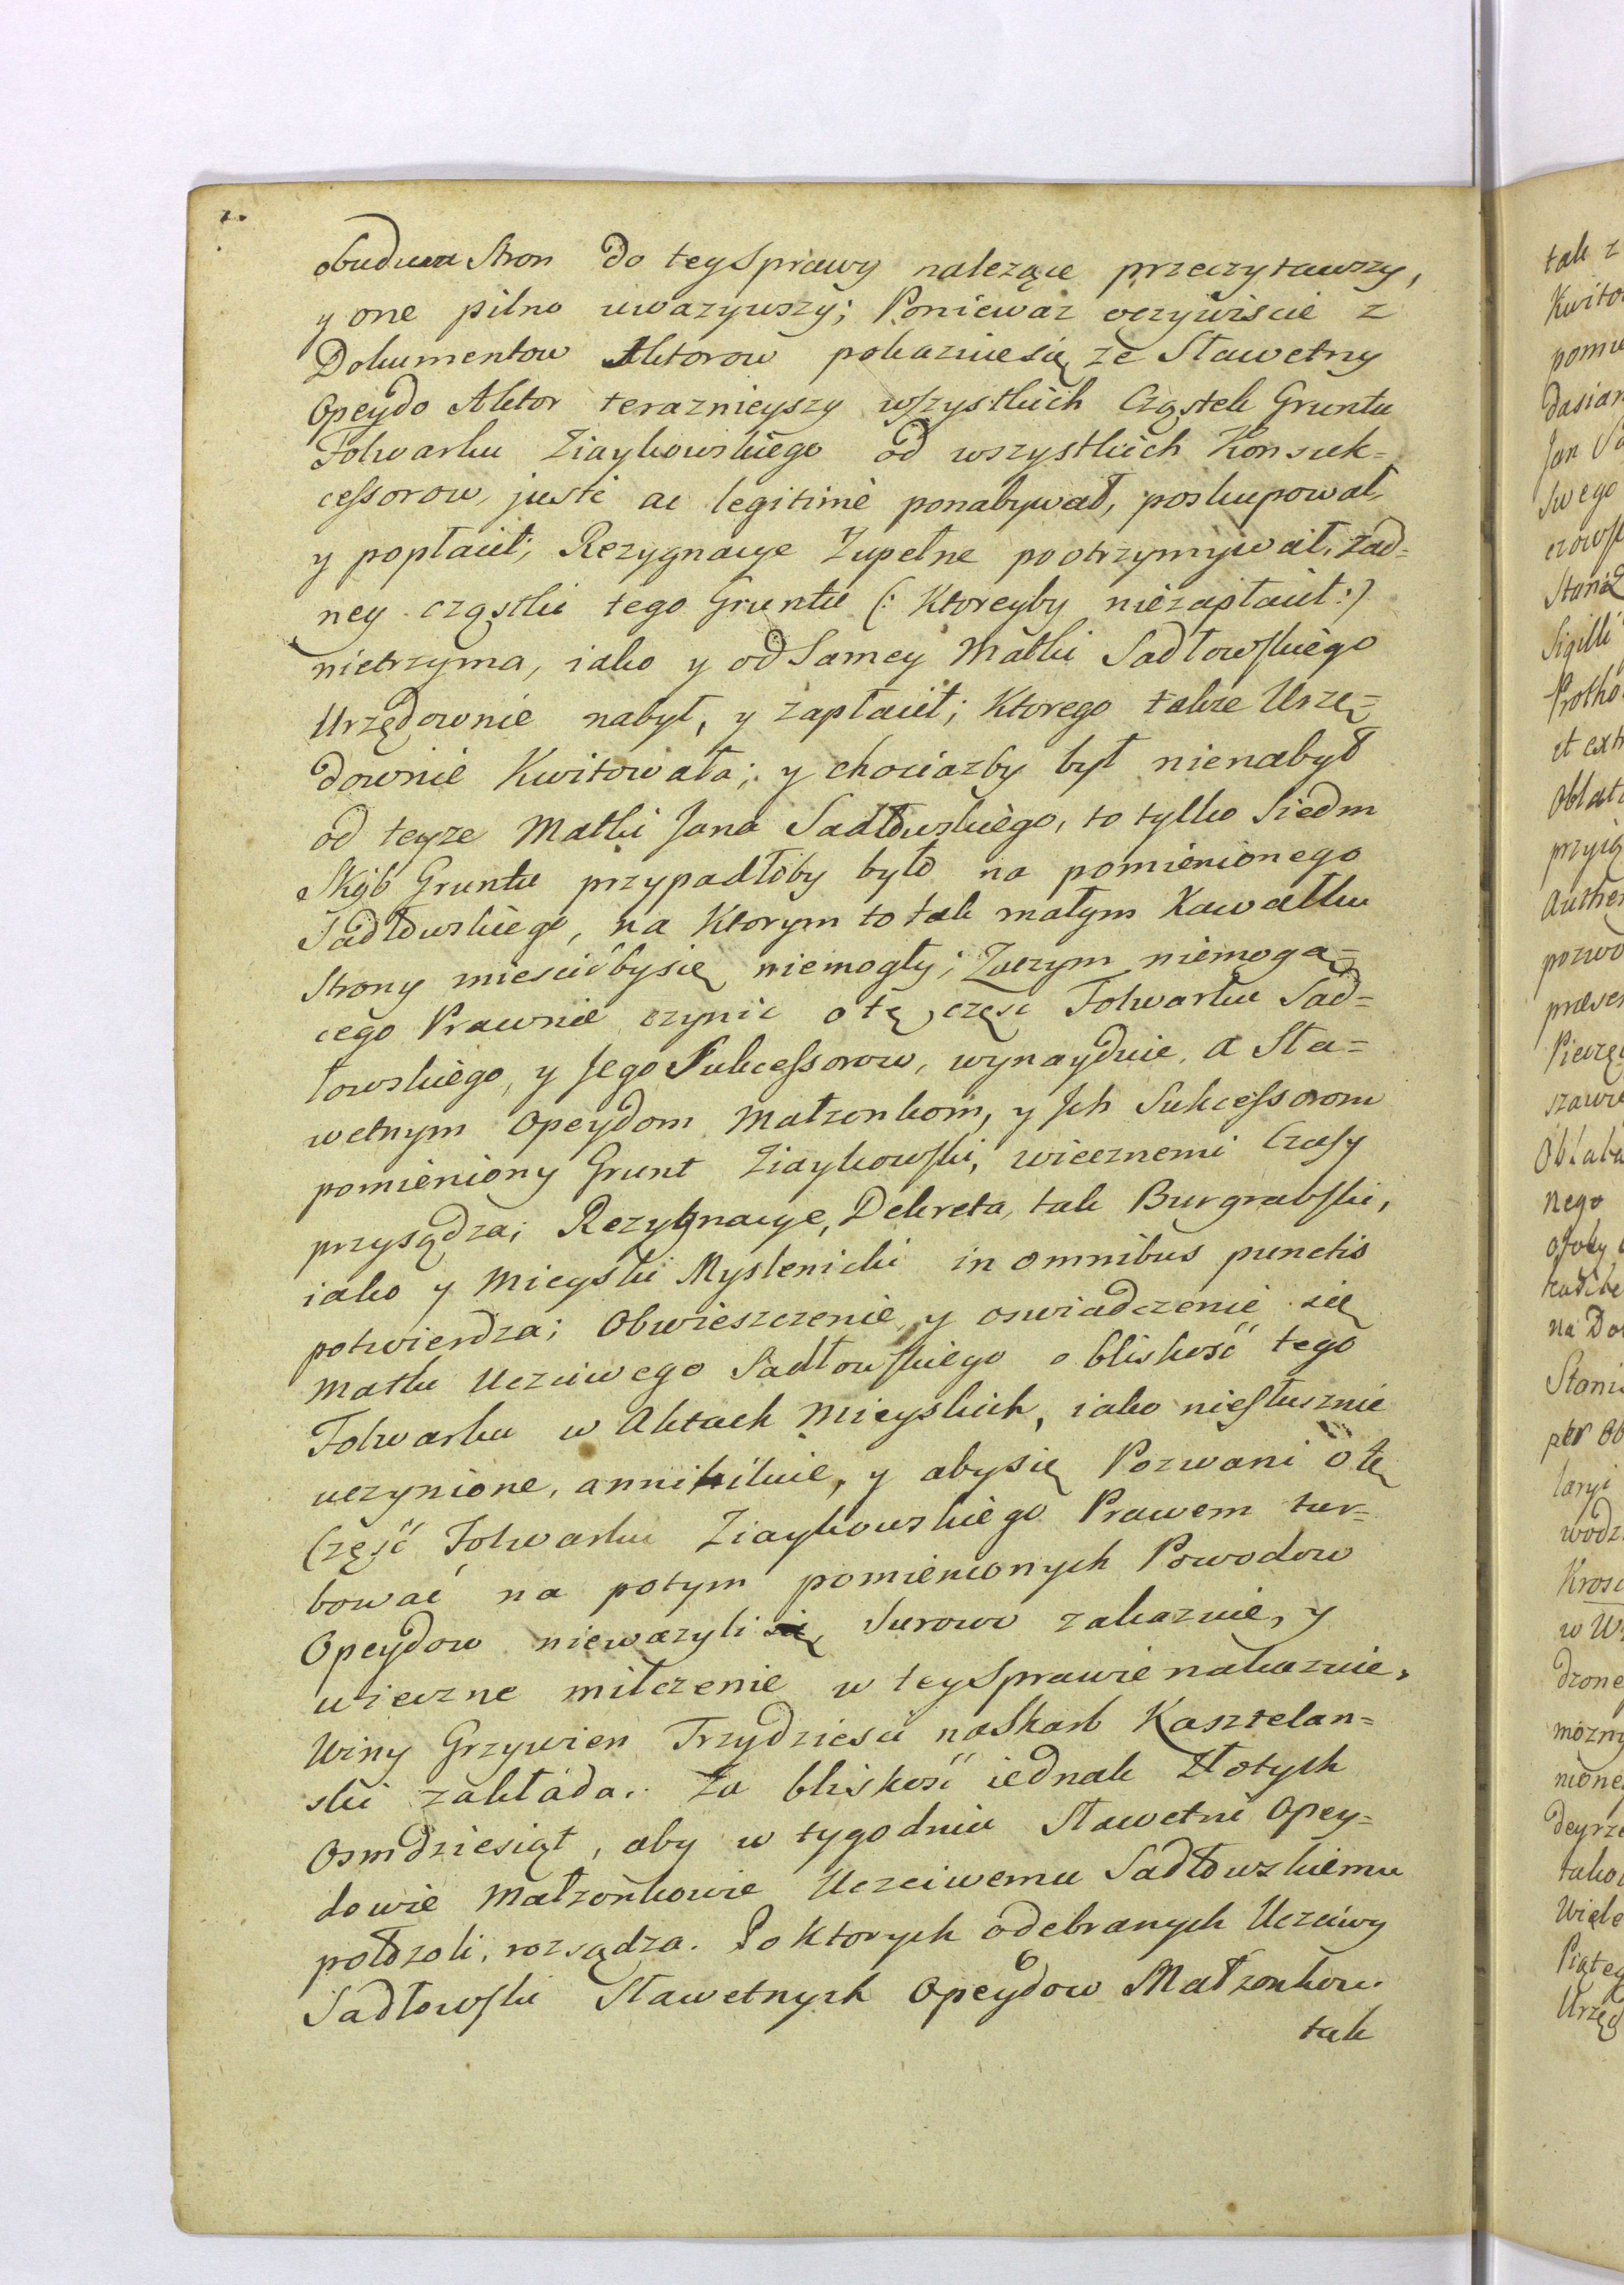 obudwu Stron do tey Sprawy nalezące przeczytawszy,
y one pilno uwazywszy; Poniewaz oczywiscie z
Dokumentow Aktorow pokazuie się ze Sławetny
Opeydo Aktor teraznieyszy wszystkich Cząstek Gruntu
Folwarku Ziaykowskiego od wszystkich Konsuk=
cessorow, justè ac legitimè ponabywał, poskupował,
y popłacił; Rezygnacye Zupełne pootrzymywał, żad=
ney cząstki tego Gruntu (: Ktoreyby niezapłacił :)
nietrzyma, iako y od Samey Matki Sadłowskiego
Urzędownie nabył, y zapłacił; Ktorego także Urzę=
downie Kwitowała; y chociazby był nienabył
od teyze Matki Jana Sadłowskiego, to tylko Siedm
Skib Gruntu przypadłoby było na pomienionego
Sadłowskiego, na Ktorym to tak małym Kawałku
Strony miescićbysię niemogły; Zaczym niemogą=
cego Prawnie czynic o tę częsc Folwarku Sad=
łowskiego, y Jego Sukcessorow, wynayduie, a Sła=
wetnym Opeydom Małzonkom, y Ich Sukcessorom
pomieniony Grunt Ziaykowski, wiecznemi Czasy
przysądza; Rezygnacye, Dekreta, tak Burgrabski,
iako y Mieyski Myslenicki in omnibus punctis
potwierdza; Obwieszczenie y oswiadczenie się
Matki Uczciwego Sadłowskiego o bliskość tego
Folwarku w Aktach Mieyskich, iako niesłusznie
uczynione, annihiluie, y abysię Pozwani o tę
Część Folwarku Ziaykowskiego Prawem tur=
bować na potym pomienionych Powodow
Opeydow niewazyli się, Surowo zakazuie, y
wieczne milczenie w tey Sprawie nakazuie,
Winy Grzywien Trzydziesci na Skarb Kasztelan=
ski zakłáda. Za bliskość iednak Złotych
Osmdziesiąt, aby w tygodniu Sławetni Opey=
dowie Małzonkowie Uczciwemu Sadłowskiemu
położoli, rozsądza. Po Ktorych odebranych Uczciwy
Sadłowski Sławetnych Opeydow Małzonkow
tak
tak z
pomie
dasian
Jan
Swego
Sigilli
et extr
Oblat
Authen
pozwo
nego
na Do
Stanis
per Ob
w
mozny
Urzęd